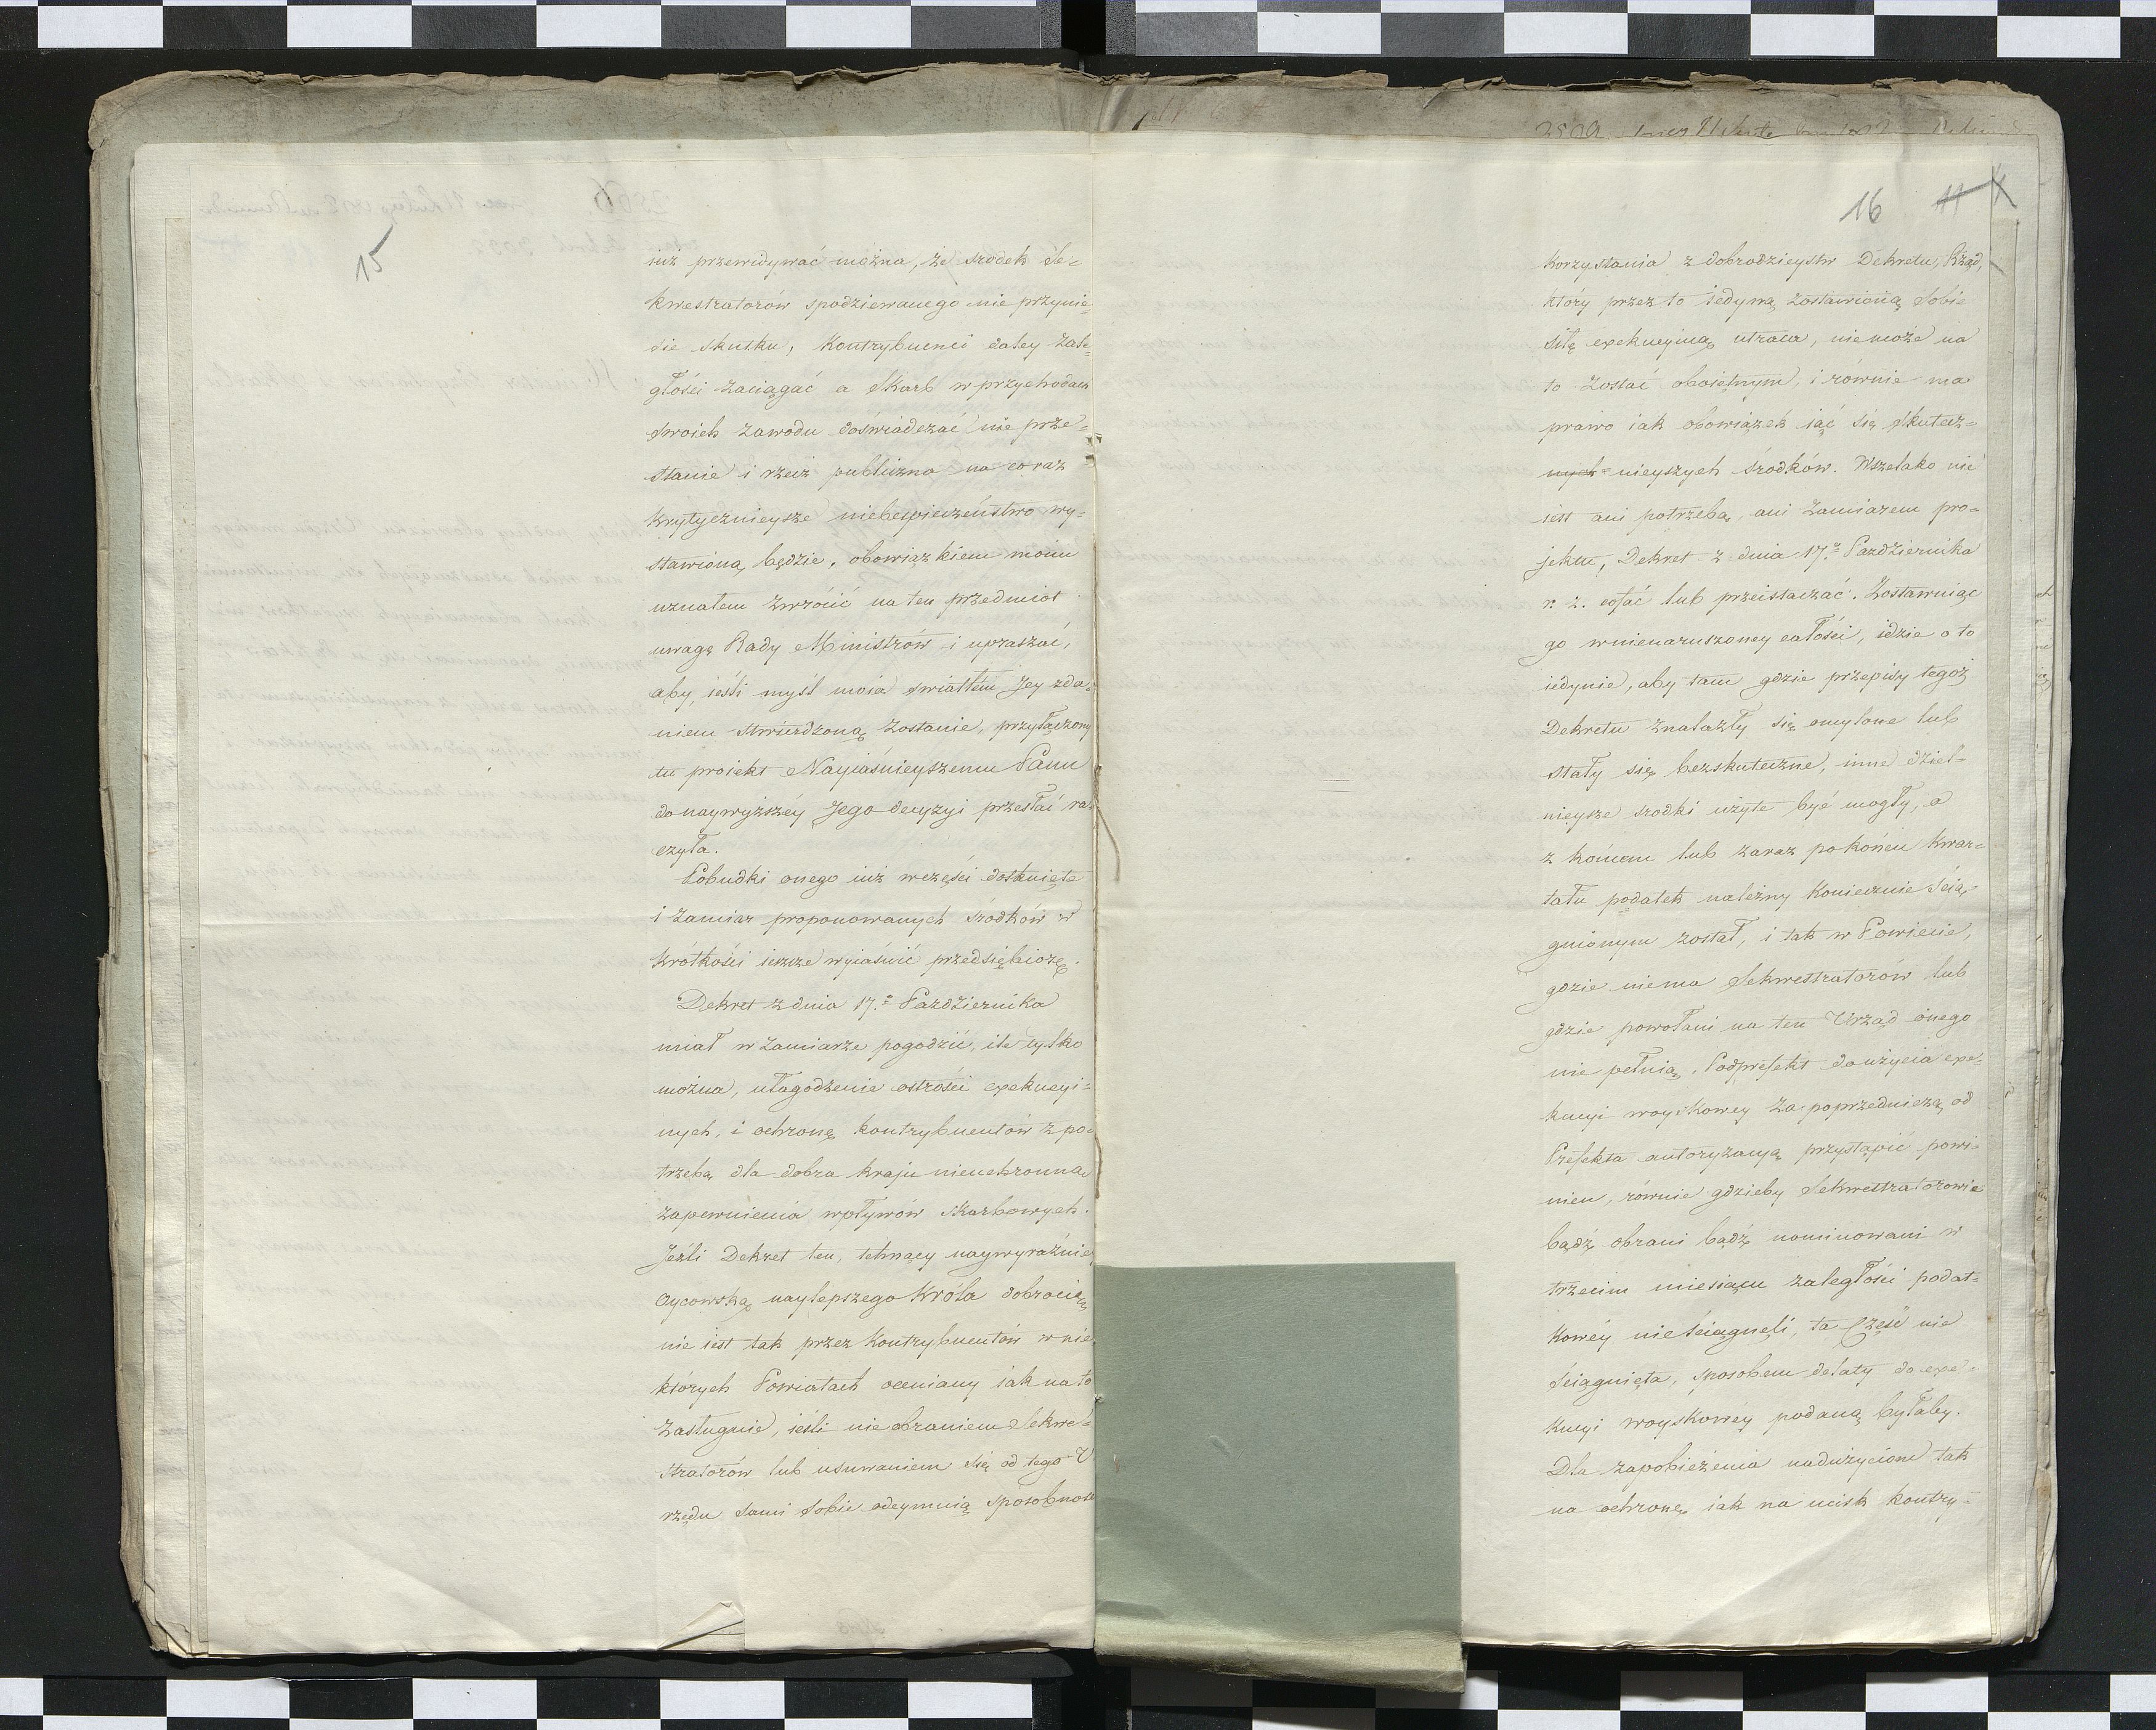 15
iuż przewidywać można, że srodek Se=
kwestratorów spodziewanego nie przynie=
sie skutku, Kontrybuenci daley zale=
głości zaciągać a Skarb w przychodach
swoich zawodu doświadczać nie prze=
stanie i rzecz publiczna na coraz
krytycznieysze niebezpieczeństwo wy=
stawioną będzie, obowiązkiem moim
uznałem zwrócić na ten przedmiot
uwagę Rady Ministrów i upraszać,
aby, ieśli myśl moia światłem Jey zda=
niem stwierdzoną zostanie, przyłączony
tu proiekt Nayiaśnieyszemu Panu
do naywyższéy Jego decyzyi przesłać ra=
czyła.
Pobudki onego iuż wczęści dotknięte
i zamiar proponowanych środków w
krótkości ieszcze wyiaśnić przedsiębiorę.
Dekret z dnia 17.º Pazdziernika
miał w zamiarze pogodzić, ile tylko
można, ułagodzenie ostrości exekucyi=
nych, i ochronę kontrybuentów z po=
trzebą dla dobra kraju nieuchronną
zapewnienia wpływów skarbowych.
Jeżli Dekret ten, tchnący naywyraźniey
Oycowską naylepszego Króla dobrocią,
nie iest tak przez Kontrybuentów w nie
których Powiatach oceniany iak na to
zasługuie, ieśli nieobraniem Sekwe=
stratorów lub usuwaniem się od tego U
rzędu sami sobie odeymuią sposobność
16 11
korzystania z dobrodzieystw Dekretu, Rząd,
który przez to iedyną zostawioną sobie
siłę exekucyiną utraca, nie może na
to zostać oboiętnym, i równie ma
prawo iak obowiązek iąć się skutecz=
nych= nieyszych środków. Wszelako nie
iest ani potrzebą, ani zamiarem pro=
jektu, Dekret z dnia 17.º Pazdziernika
r. z. cofać lub przeistaczać. Zostawuiąc
go wnienaruszoney całości, idzie o to
iedynie, aby tam gdzie przepisy tegoż
Dekretu znalazły się omylone lub
stały się bezskuteczne, inne dziel=
nieysze srodki użyte być mogły, a
z końcem lub zaraz po końcu Kwar=
tału podatek należny koniecznie ścią=
gnionym został, i tak w Powiecie,
gdzie niema Sekwestratorów lub
gdzie powołani na ten Urząd onego
nie pełnią, Podprefekt do użycia exe=
kucyi woyskowey za poprzedniczą od
Prefekta autoryzacyą przystąpić powi=
nien, równie gdzieby Sekwestratorowie
bądź obrani bądź nominowani w
trzecim miesiącu zaległości podat=
kowéy nieściągnęli, ta Część nie
ściągnięta, sposobem delaty do exe=
kucyi woyskowey podaną byłaby.
Dla zapobieżenia nadużyciom tak
na ochronę iak na ucisk kontry=